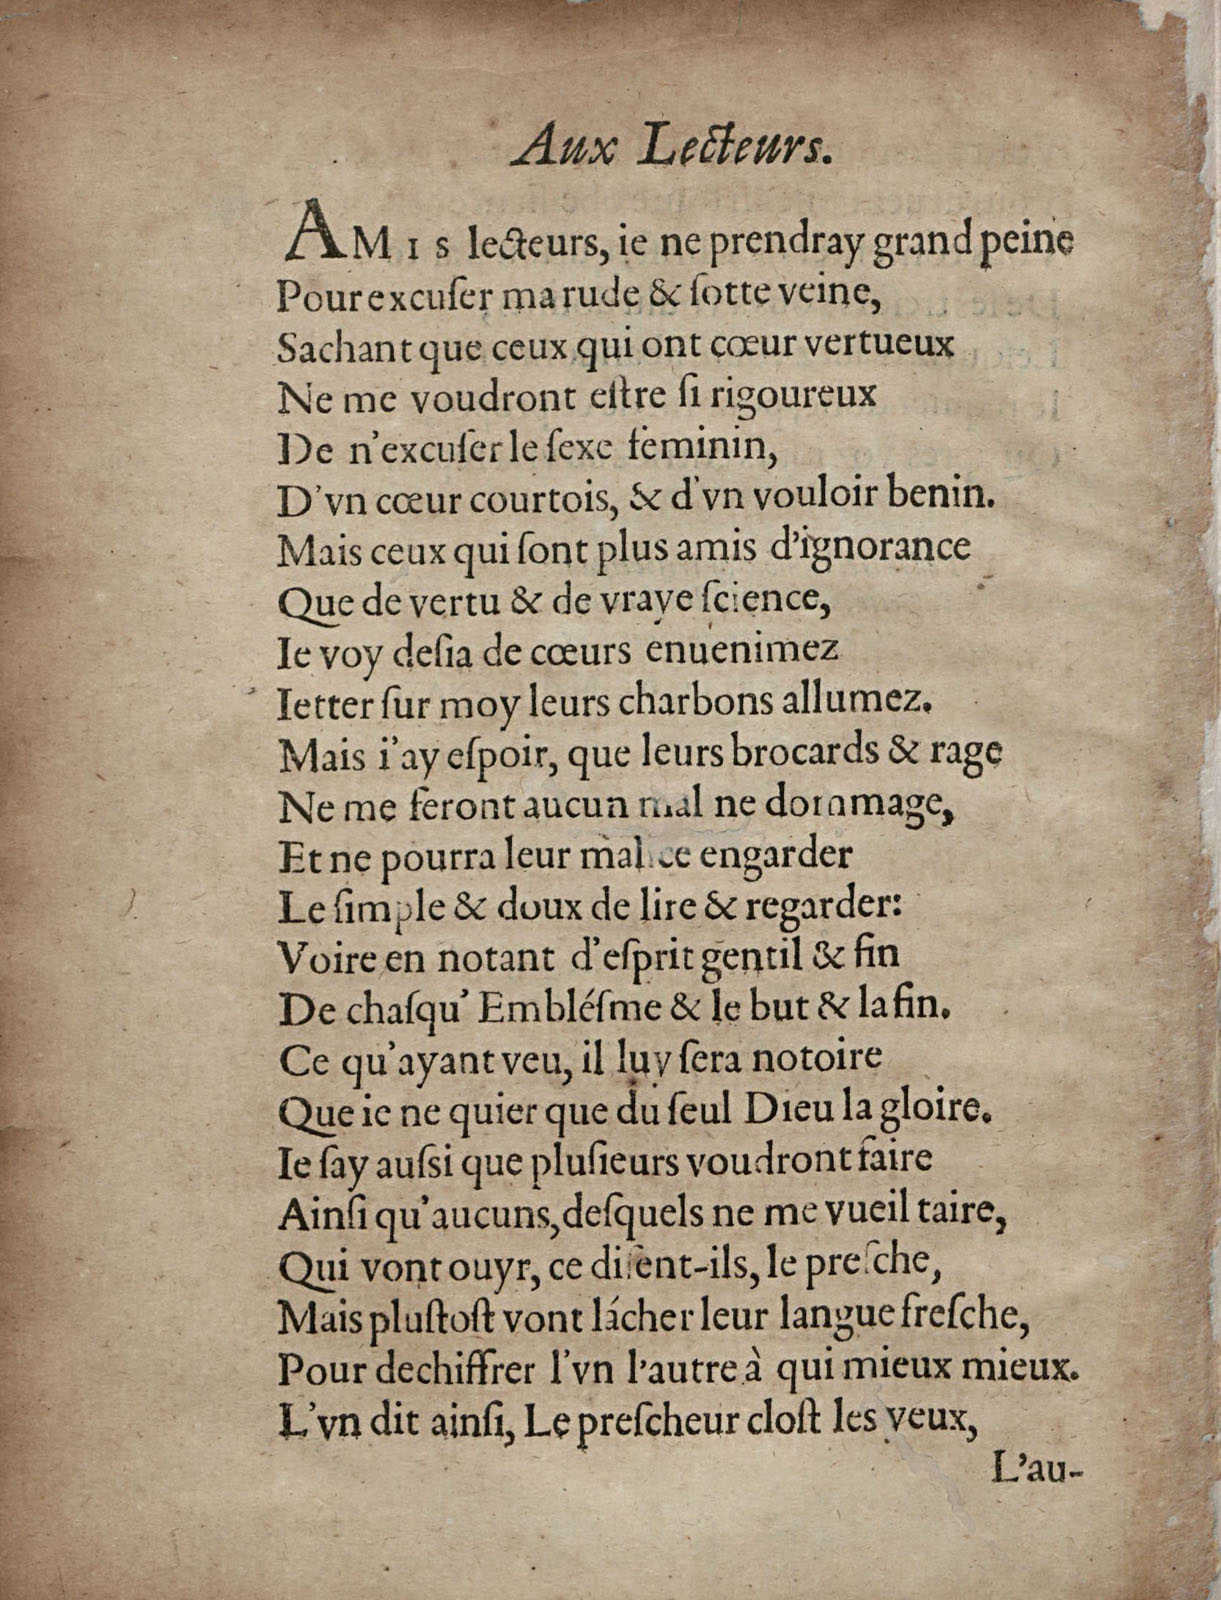 Aux Lecteurs.
AMIS lecteurs, ie ne prendray grand peine
Pour excuſer ma rude & ſotte veine,
Sachant que ceux qui ont cœur vertueux
Ne me voudront eſtre ſi rigoureux
De n'excuſer le ſexe feminin,
D'vn cœur courtois, & d'vn vouloir benin.
Mais ceux qui ſont plus amis d'ignorance
Que de vertu & de vraye ſcience,
Ie voy deſia de cœurs enuenimez
Ietter ſur moy leurs charbons allumez.
Mais i'ay eſpoir, que leurs brocards & rage
Ne me feront aucun mal ne dommage,
Et ne pourra leur malice engarder
Le ſimple & doux de lire & regarder:
Voire en notant d'eſprit gentil & fin
De chaſqu' Embléſme & le but & la fin.
Ce qu'ayant veu, il luy ſera notoire
Que ie ne quier que du ſeul DIEU la gloire.
Ie ſay auſsi que pluſieurs voudront faire
Ainſi qu'aucuns, deſquels ne me vueil taire,
Qui vont ouyr, ce diſent-ils, le preſche,
Mais pluſtoſt vont lácher leur langue freſche,
Pour dechiffrer l'vn l'autre à qui mieux mieux.
L'vn dit ainſi, Le preſcheur cloſt les yeux,
L'au-